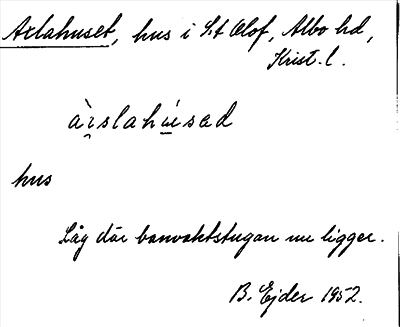 Axlahuset, hus i S:t Olof, Albo hd,
Krist. l.
àr̤slahúsad
hus
Låg där banvaktstugan nu ligger.
B. Ejder 1952.